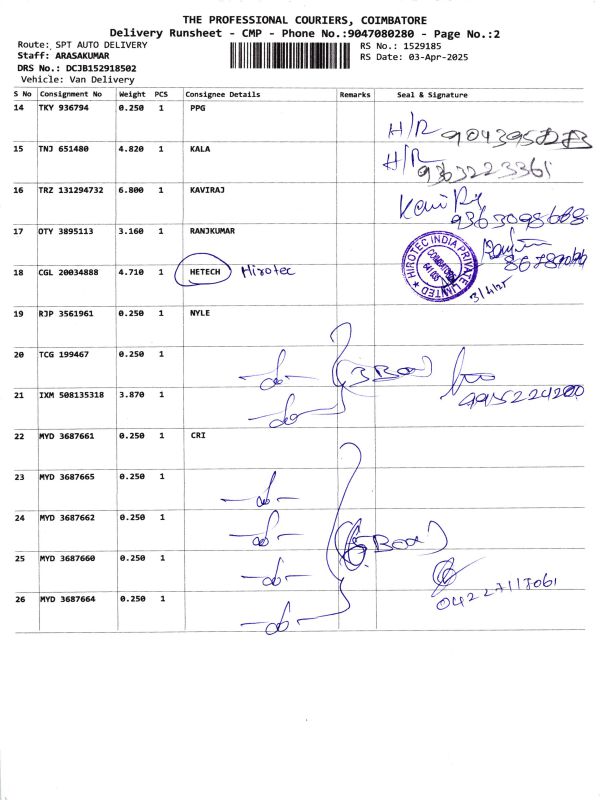 THE PROFESSIONAL COURIERS, COIMBATORE
Delivery Runsheet - CMP - Phone No.:9047080280 - Page No.:2
Route: SPT AUTO DELIVERY
RS No.: 1529185
Staff: ARASAKUMAR
RS Date: 03-Apr-2025
DRS No.: DCJB152918502
Vehicle: Van Delivery
S No Consignment No Weight PCS Consignee Details Remarks Seal & Signature
14 TKY 936794 0.250 1 PPG H/R
15 TNJ 651480 4.820 1 KALA H/R 9363223361
16 TRZ 131294732 6.800 1 KAVIRAJ Kavi Raj
17 OTY 3895113 3.160 1 RANJKUMAR
18 CGL 20034888 4.710 1 HETECH Hirotec HIROTEC INDIA PRIVATE LIMITED COIMBATORE 3/4/25
19 RJP 3561961 0.250 1 NYLE
20 TCG 199467 0.250 1 -do- (3 Box)
21 IXM 508135318 3.870 1 -do- 9915224200
22 MYD 3687661 0.250 1 CRI
23 MYD 3687665 0.250 1 -do-
24 MYD 3687662 0.250 1 -do- (5 Box)
25 MYD 3687660 0.250 1 -do-
26 MYD 3687664 0.250 1 -do- 04227117061